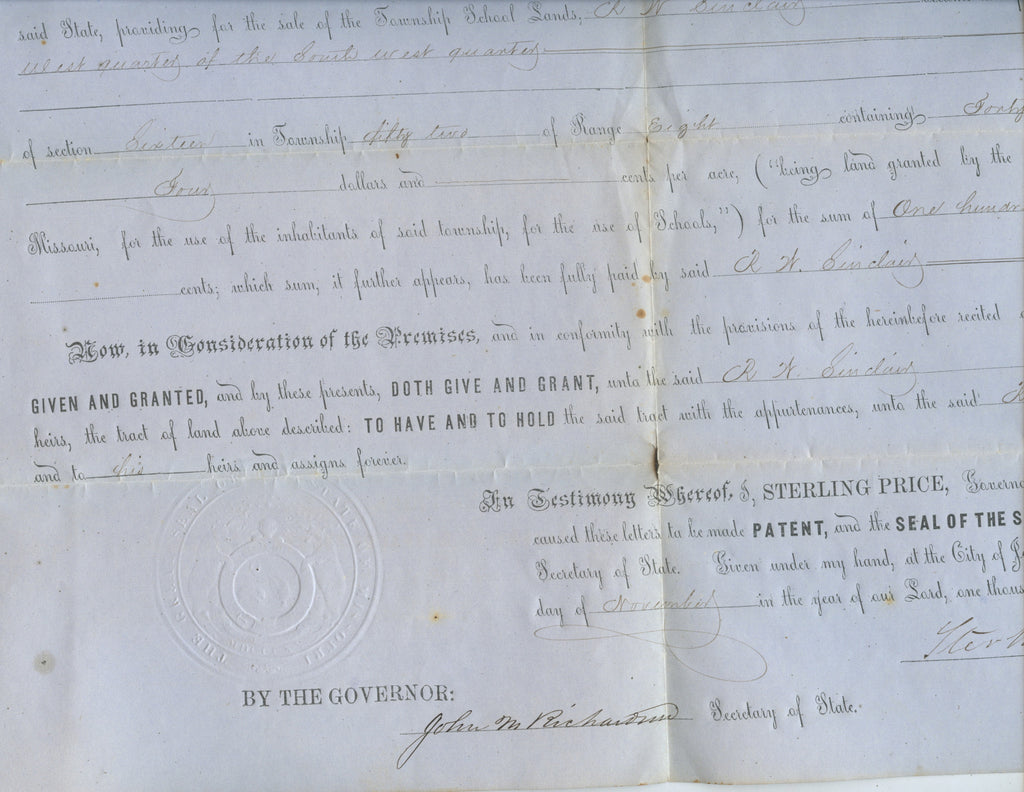 said State, providing for the sale of the Township School Lands, R W Sinclair
West quarter of the South west quarter
of section Sixteen in Township fifty two of Range Eight containing Forty
Four dollars and cents per acre, ("being land granted by the
Missouri, for the use of the inhabitants of said township, for the use of Schools,") for the sum of One hundr
cents; which sum, it further appears, has been fully paid by said R W. Sinclair
Now, in Consideration of the Premises, and in conformity with the provisions of the hereinbefore recited
GIVEN AND GRANTED, and by these presents, DOTH GIVE AND GRANT, unto the said R W. Sinclair
heirs, the tract of land above described: TO HAVE AND TO HOLD the said tract with the appurtenances, unto the said
and to his heirs and assigns forever.
In Testimony Whereof, I, STERLING PRICE, Governo
caused these letters to be made PATENT, and the SEAL OF THE S
Secretary of State. Given under my hand, at the City of Je
day of November in the year of our Lord, one thous
Sterl
THE GREAT SEAL OF THE STATE OF MISSOURI
BY THE GOVERNOR:
John M Richardson Secretary of State.